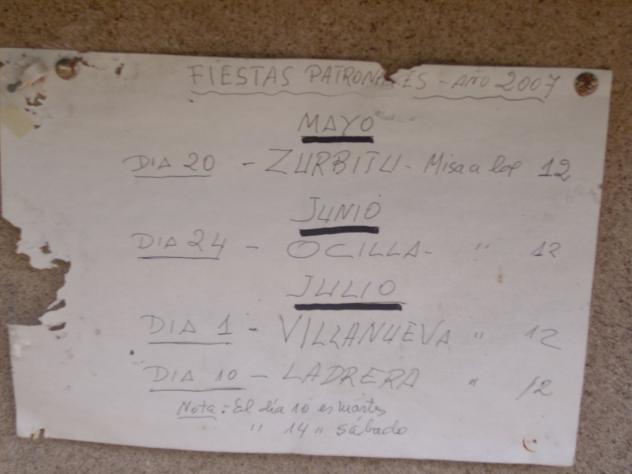 FIESTAS PATRONALES - AÑO 2007
MAYO
DIA 20 - ZURBITU - Misa a las 12
JUNIO
DIA 24 - OCILLA - " 12
JULIO
DIA 1 - VILLANUEVA " 12
DIA 10 - LADRERA " 12
Nota: El día 10 es martes
" 14 " sábado